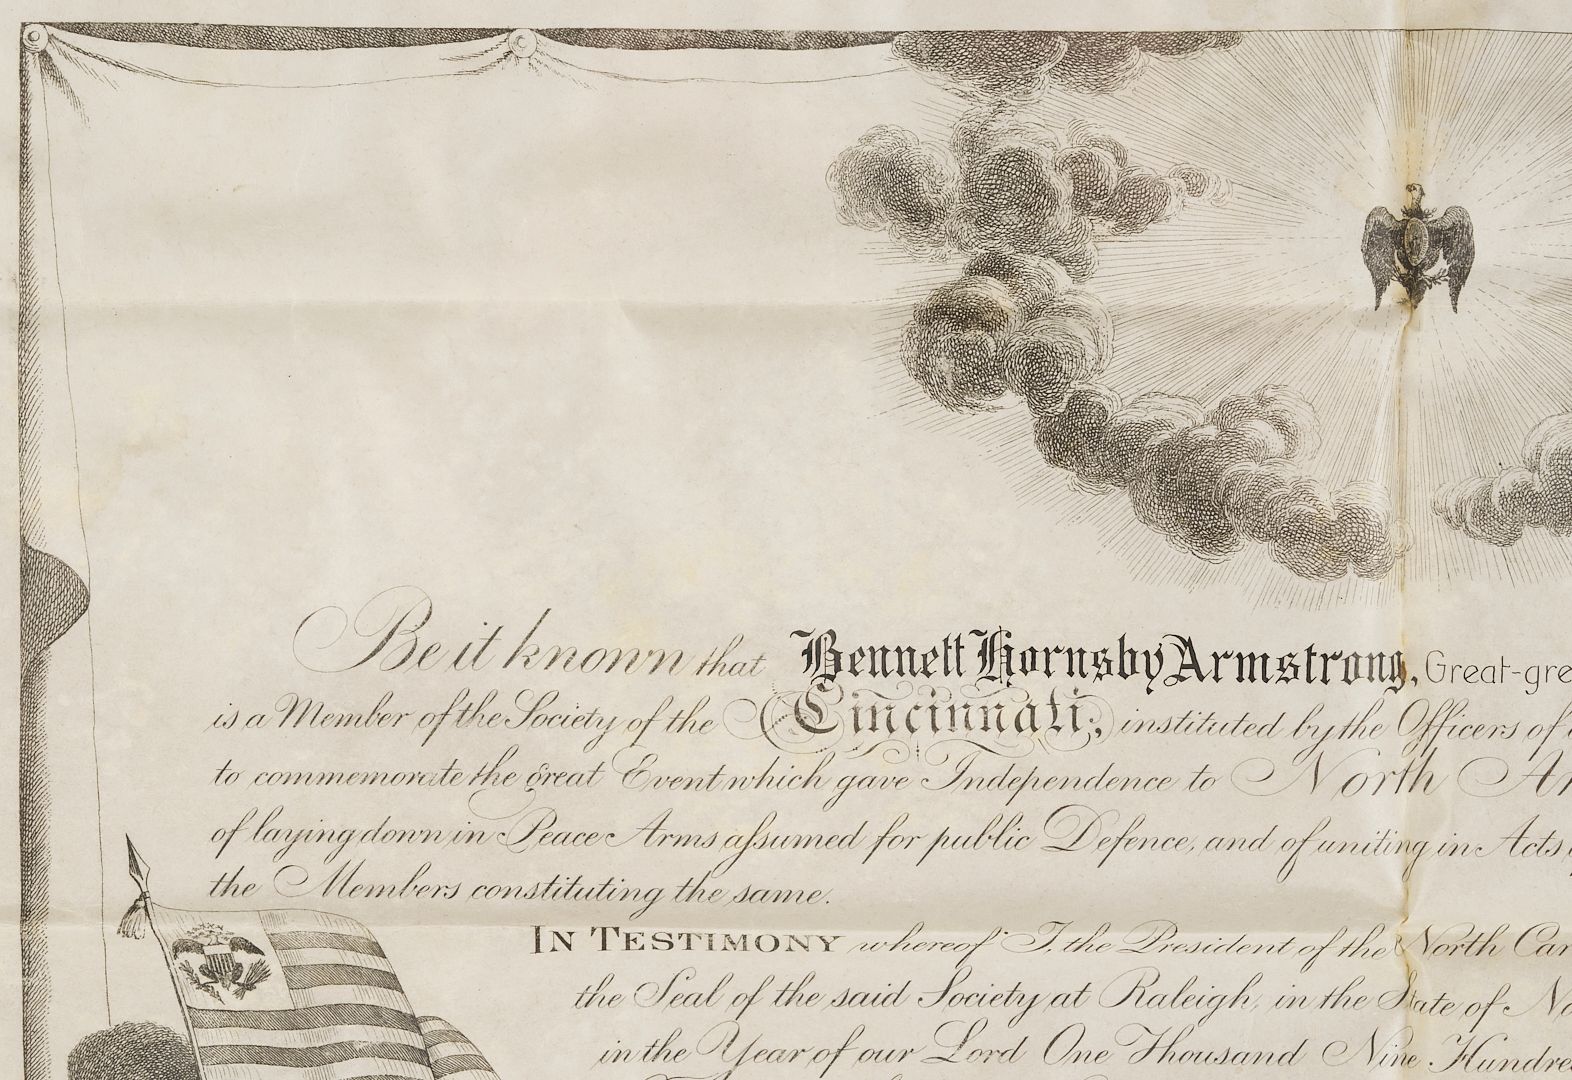 Be it known that Bennett Hornsby Armstrong, Great-gre
is a Member of the Society of the Cincinnati; instituted by the Officers of
to commemorate the great Event which gave Independence to North
of laying down in Peace Arms assumed for public Defence, and of uniting in Acts
the Members constituting the same.
IN TESTIMONY whereof I, the President of the North Car
the Seal of the said Society at Raleigh, in the State of No
in the Year of our Lord One Thousand Nine Hundre